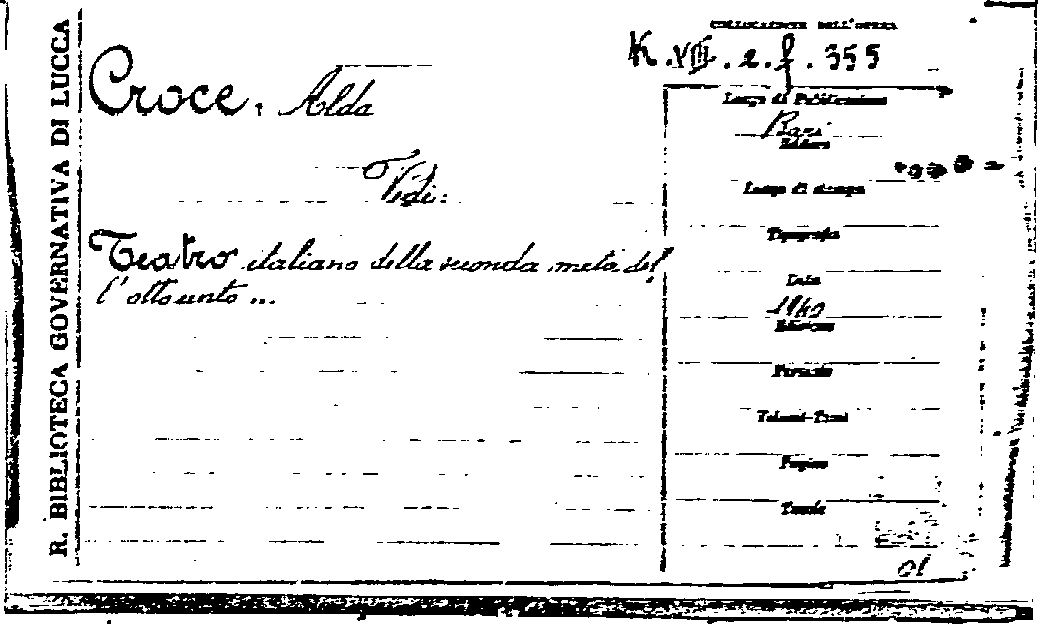 R. BIBLIOTECA GOVERNATIVA DI LUCCA
COLLOCAZIONE DELL'OPERA
K.VIII.e.f.355
Croce, Alda
Vedi:
Teatro italiano della seconda metà del
l'ottocento ...
Luogo di Pubblicazione
Bari
Editore
Luogo di stampa
Tipografia
Data
1940
Edizione
Formato
Volumi-Tomi
Pagine
Tavole